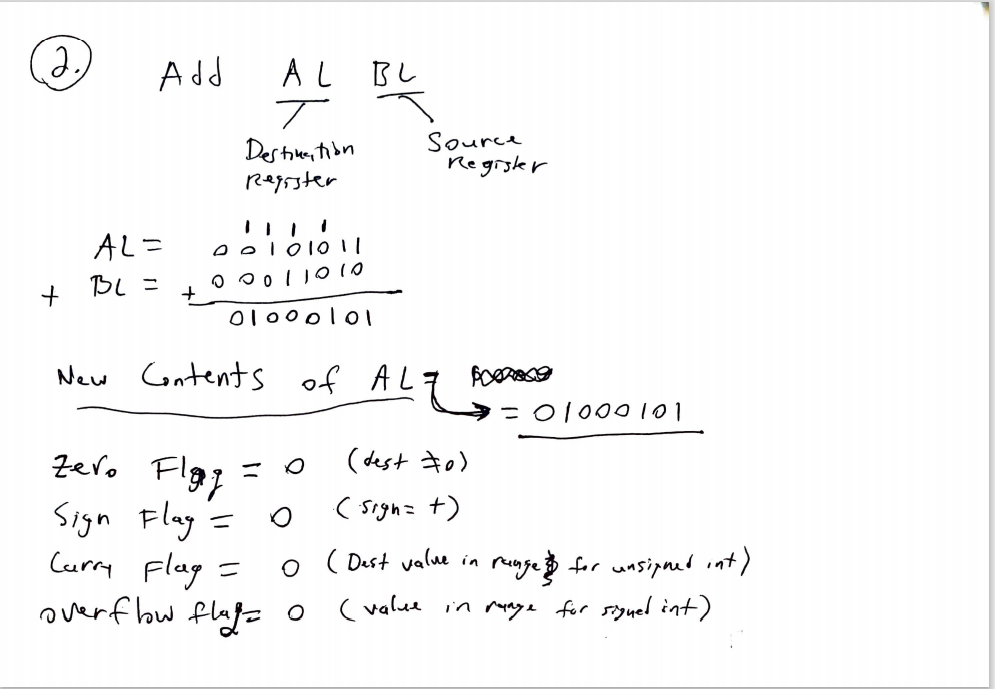 2.
Add AL BL
Destination Register
Source Register
1 1 1 1
AL = 00101011
+ BL = + 00011010
01000101
New Contents of AL
= 01000101
Zero Flag = 0 (dest ≠0)
Sign Flag = 0 (sign= +)
Carry Flag = 0 (Dest value in range for unsigned int)
overflow flag= 0 (value in range for signed int)